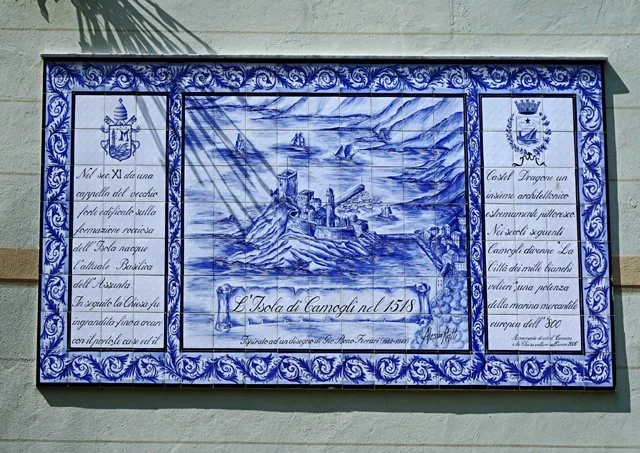 Nel sec. XI da una
cappella del vecchio
forte edificato sulla
formazione rocciosa
dell'Isola nacque
l'attuale Basilica
dell'Assunta.
In seguito la Chiesa fu
ingrandita fino a creare
con il porto, le case ed il
L'Isola di Camogli nel 1518
Ispirato ad un disegno di Gio Bono Ferrari
Castel Dragone un
insieme architettonico
estremamente pittoresco
Nei secoli seguenti
Camogli divenne "La
Città dei mille bianchi
velieri" una potenza
della marina mercantile
europea dell' '800
A memoria di ciò il Comune
e la Chiesa vollero nell'anno